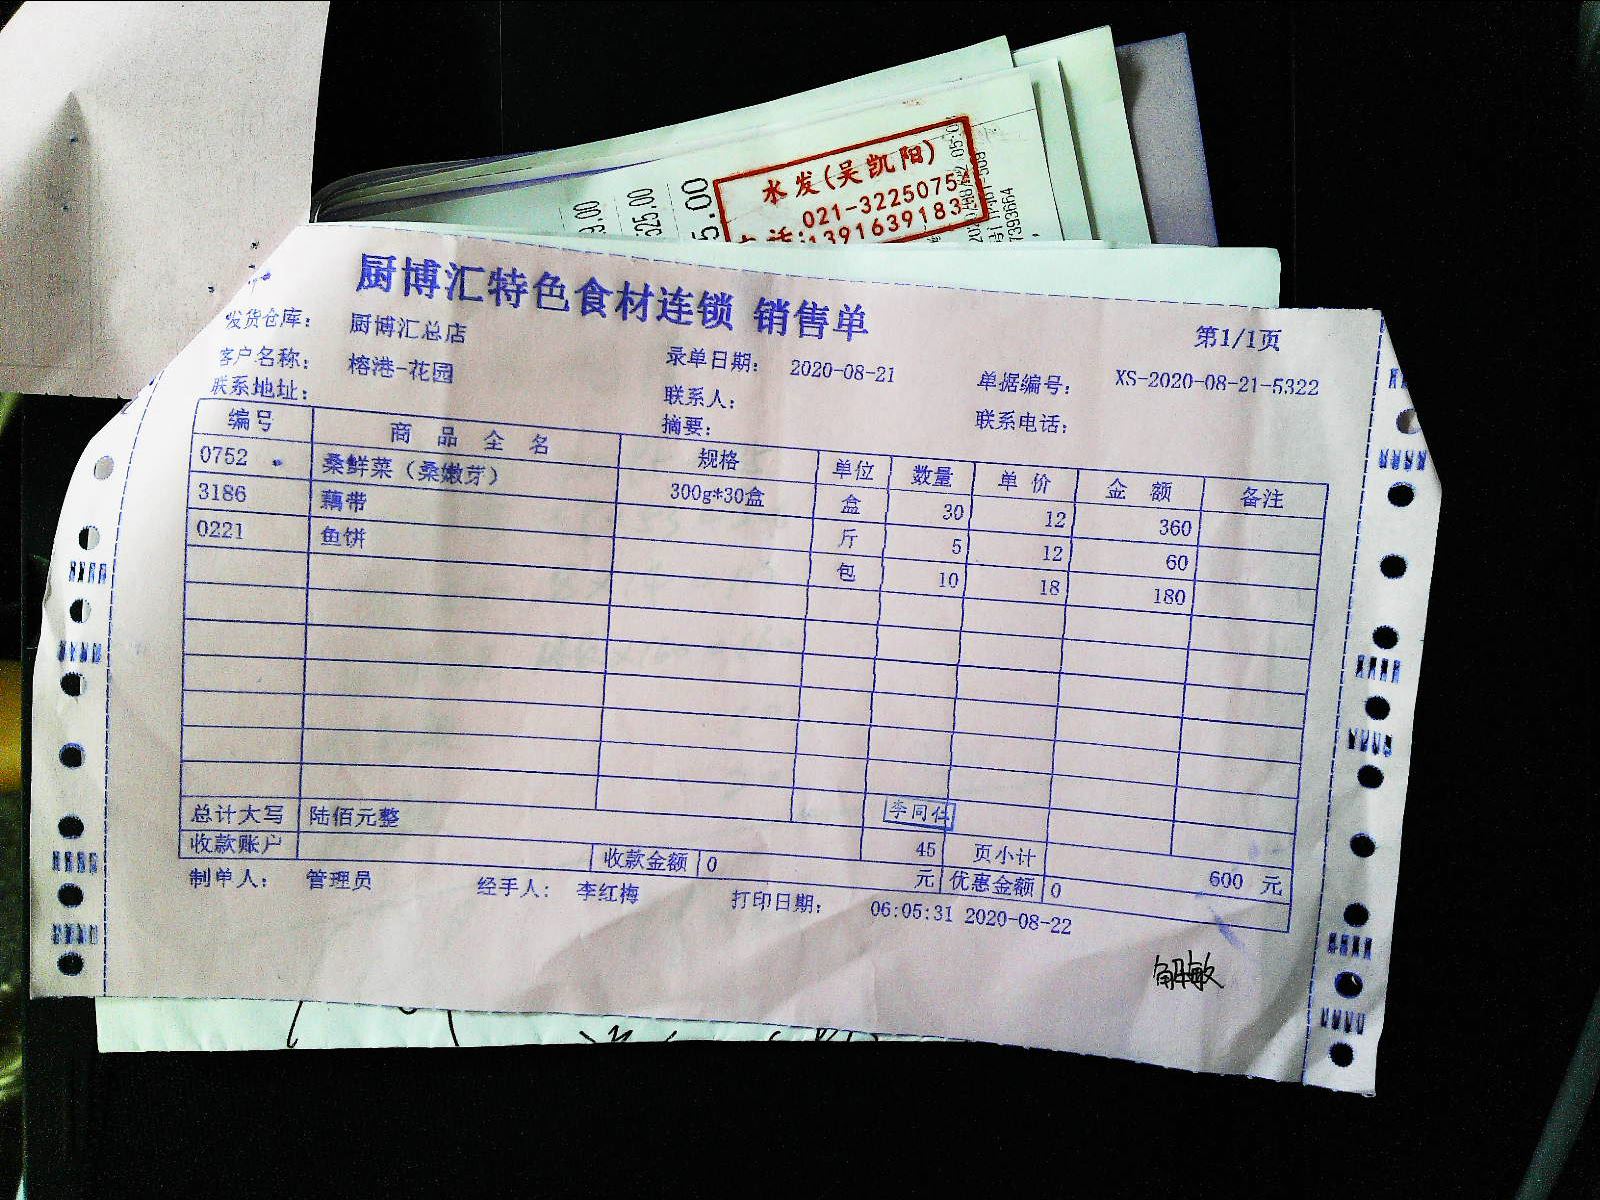 水发(吴凯阳)
021-3225075
电话:1391639183
525.00
5.00
厨博汇特色食材连锁 销售单
第1/1页
发货仓库: 厨博汇总店
客户名称: 榕港-花园 录单日期: 2020-08-21 单据编号: XS-2020-08-21-5322
联系地址: 联系人: 联系电话:
摘要:
编号 商品全名 规格 单位 数量 单价 金额 备注
0752 桑鲜菜（桑嫩芽） 300g*30盒 盒 30 12 360
3186 藕带 斤 5 12 60
0221 鱼饼 包 10 18 180
李同仁
总计大写 陆佰元整 45 页小计 600 元
收款账户 收款金额 0 元 优惠金额 0
制单人: 管理员 经手人: 李红梅 打印日期: 06:05:31 2020-08-22
解敏